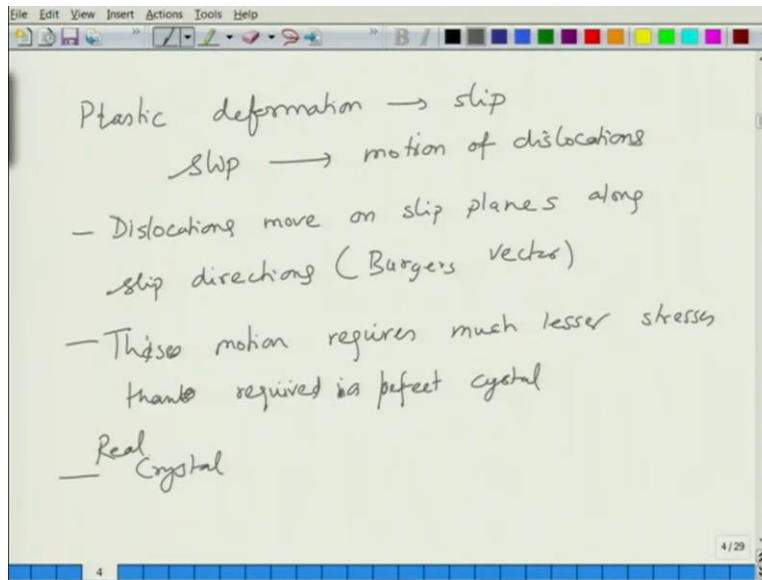 File Edit View Insert Actions Tools Help
B I
Plastic deformation → slip
slip → motion of dislocations
– Dislocations move on slip planes along
slip directions (Burgers vector)
– This motion requires much lesser stresses
than required in a pefect cystal
– Real Crystal
4/29
4